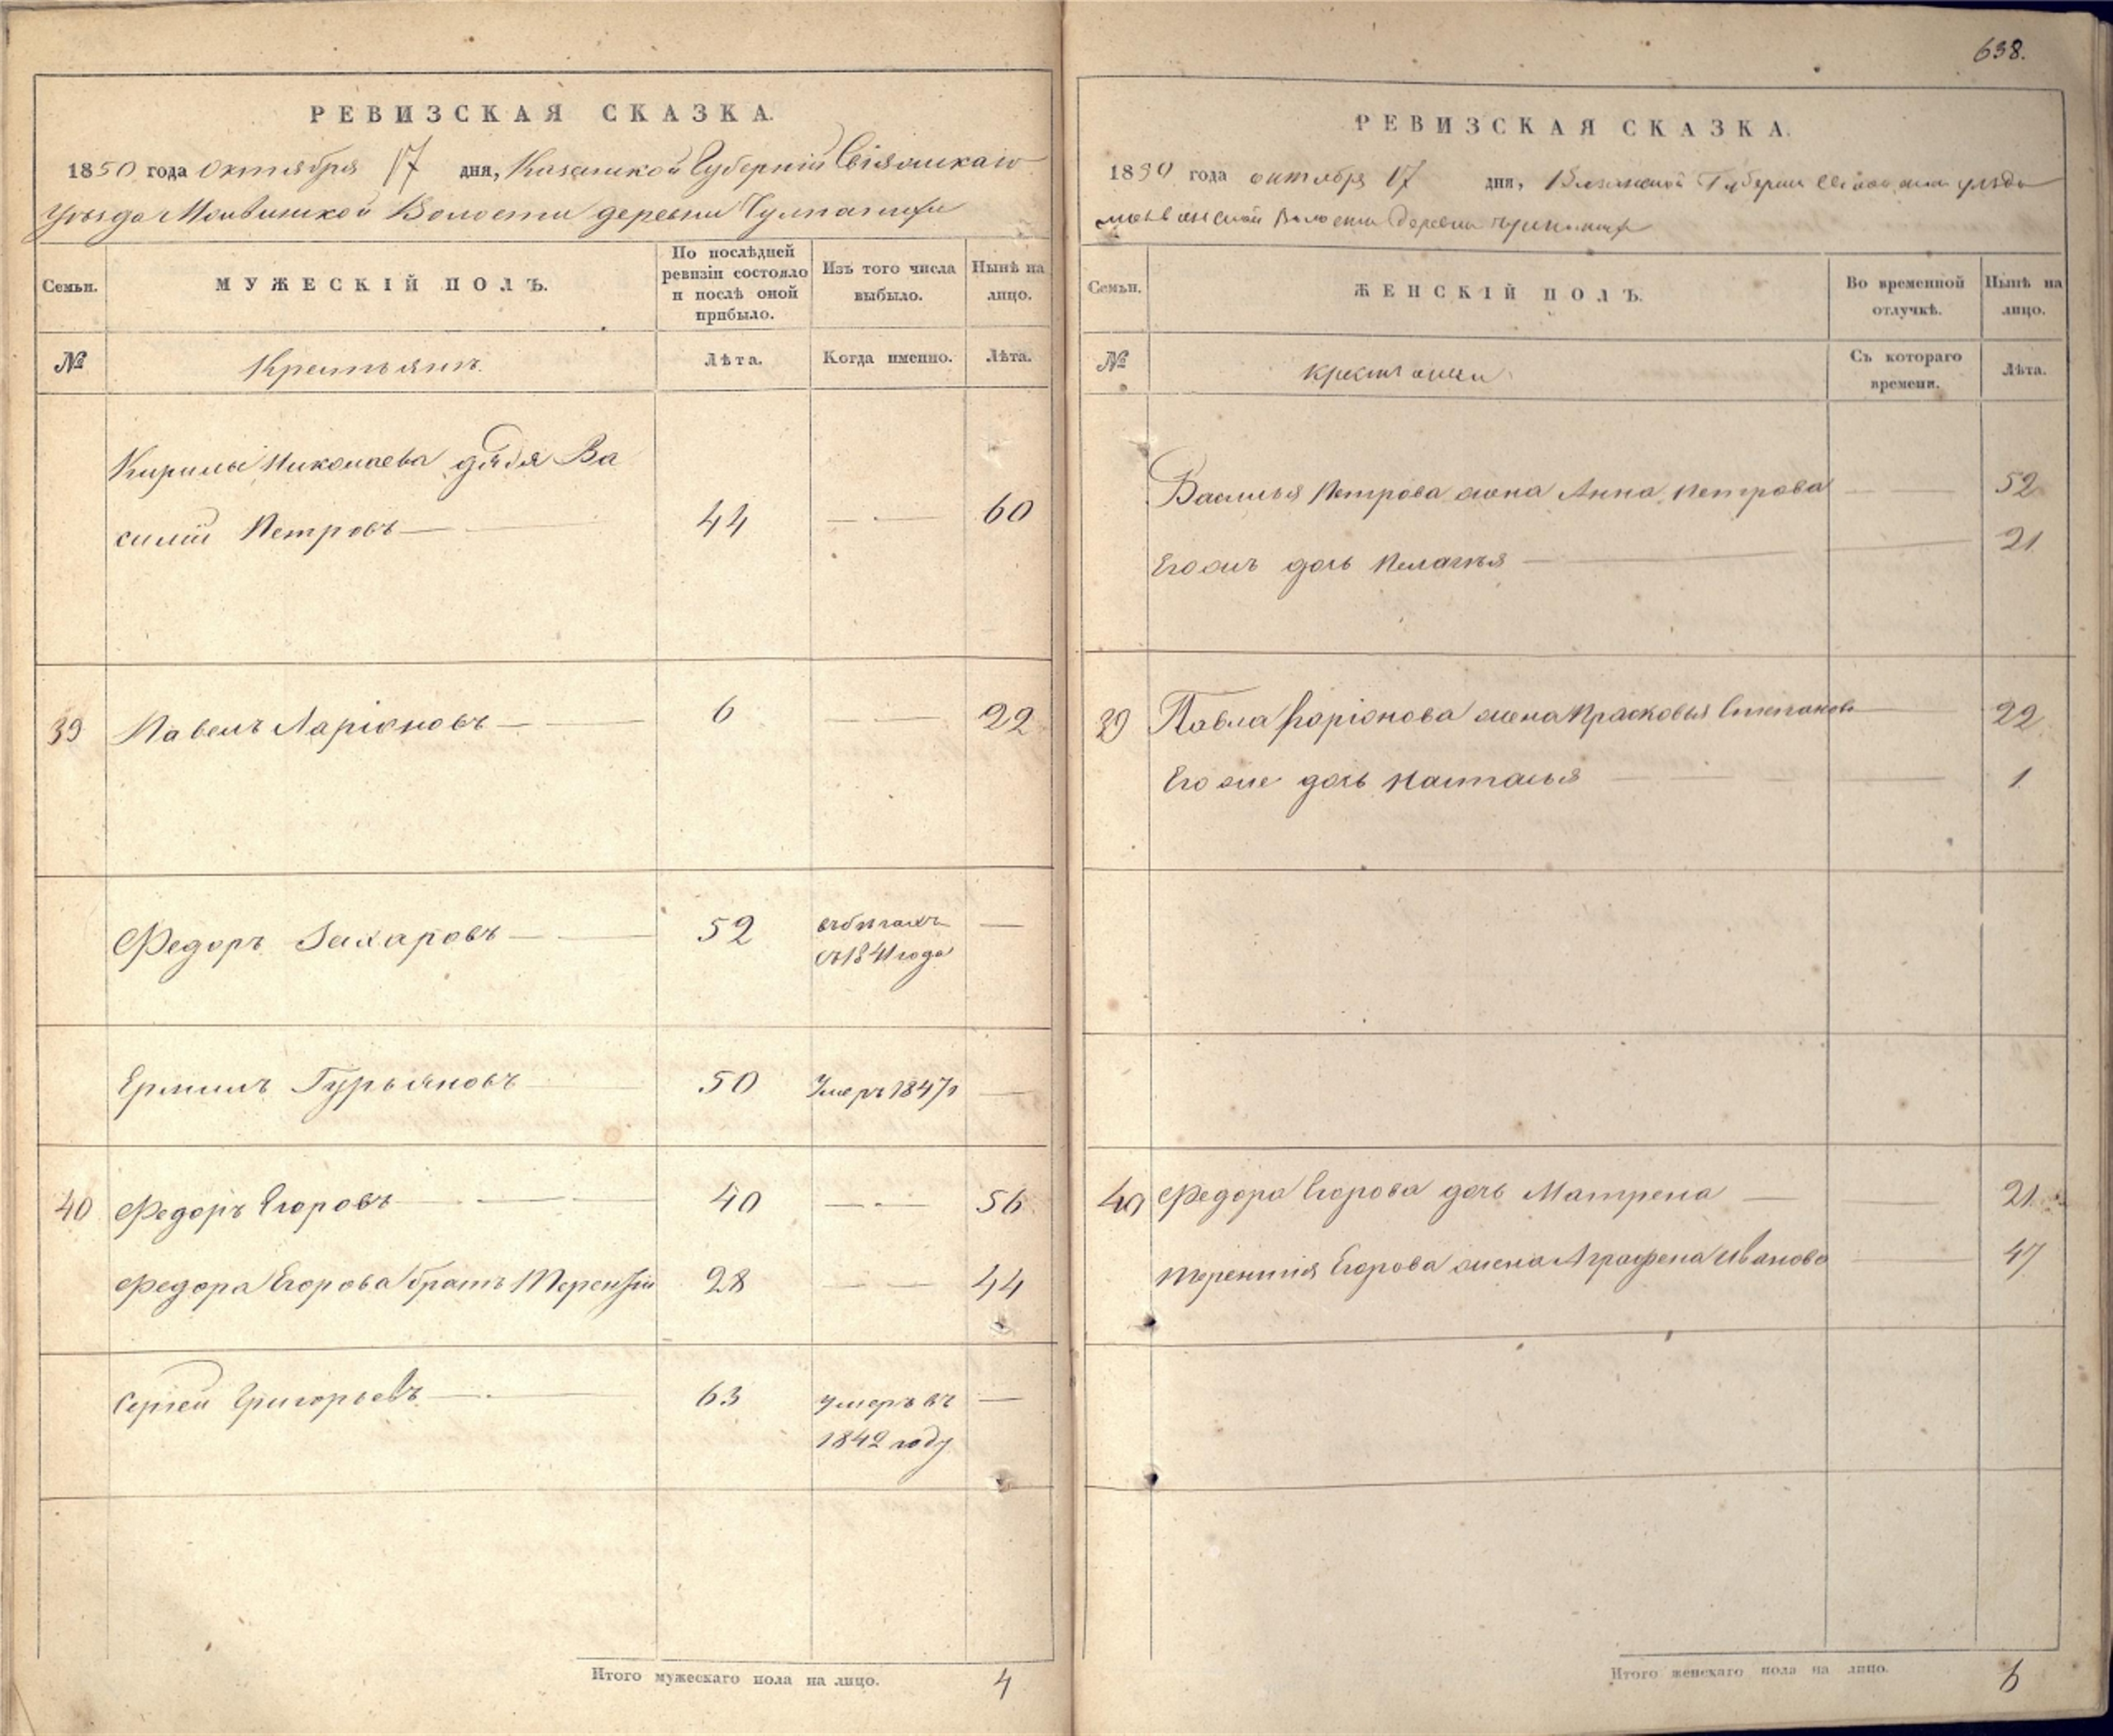 РЕВИЗСКАЯ СКАЗКА.
1850 года Октября 17 дня, Казанской Губерніи Свіяжскаго
Уѣзда Волости деревни
Семьи. МУЖЕСКІЙ ПОЛЪ. По послѣдней ревизіи состояло и послѣ оной прибыло. Изъ того числа выбыло. Нынѣ на лицо.
№ Крестьянъ. Лѣта. Когда именно. Лѣта.
Кирилы Николаева дядя Ва
силій Петровъ 44 60
39 Павелъ Ларіоновъ 6 22
Федоръ Захаровъ 52 въ бѣгахъ
съ 1841 года
Ермилъ Гурьяновъ 50 Умеръ 1847 г
40 Федоръ Егоровъ 40 56
Федора Егорова братъ Терентій 28 44
Сергей Григорьевъ 63 умеръ въ
1842 году
Итого мужескаго пола на лицо. 4
638.
РЕВИЗСКАЯ СКАЗКА.
1850 года октября 17 дня, Казанской Губерніи уѣзда
Волости деревни
Семьи. ЖЕНСКІЙ ПОЛЪ. Во временной отлучкѣ. Нынѣ на лицо.
№ Съ котораго времени. Лѣта.
Василья Петрова жена Анна Петрова 52
Его жъ дочь Пелагья 21
39 Павла Ларіонова жена Прасковья Степанова 22
Его же дочь Наталья 1
40 Федора Егорова дочь Матрена 21
Терентия Егорова жена Аграфена Иванова 47
Итого женскаго пола на лицо. 6